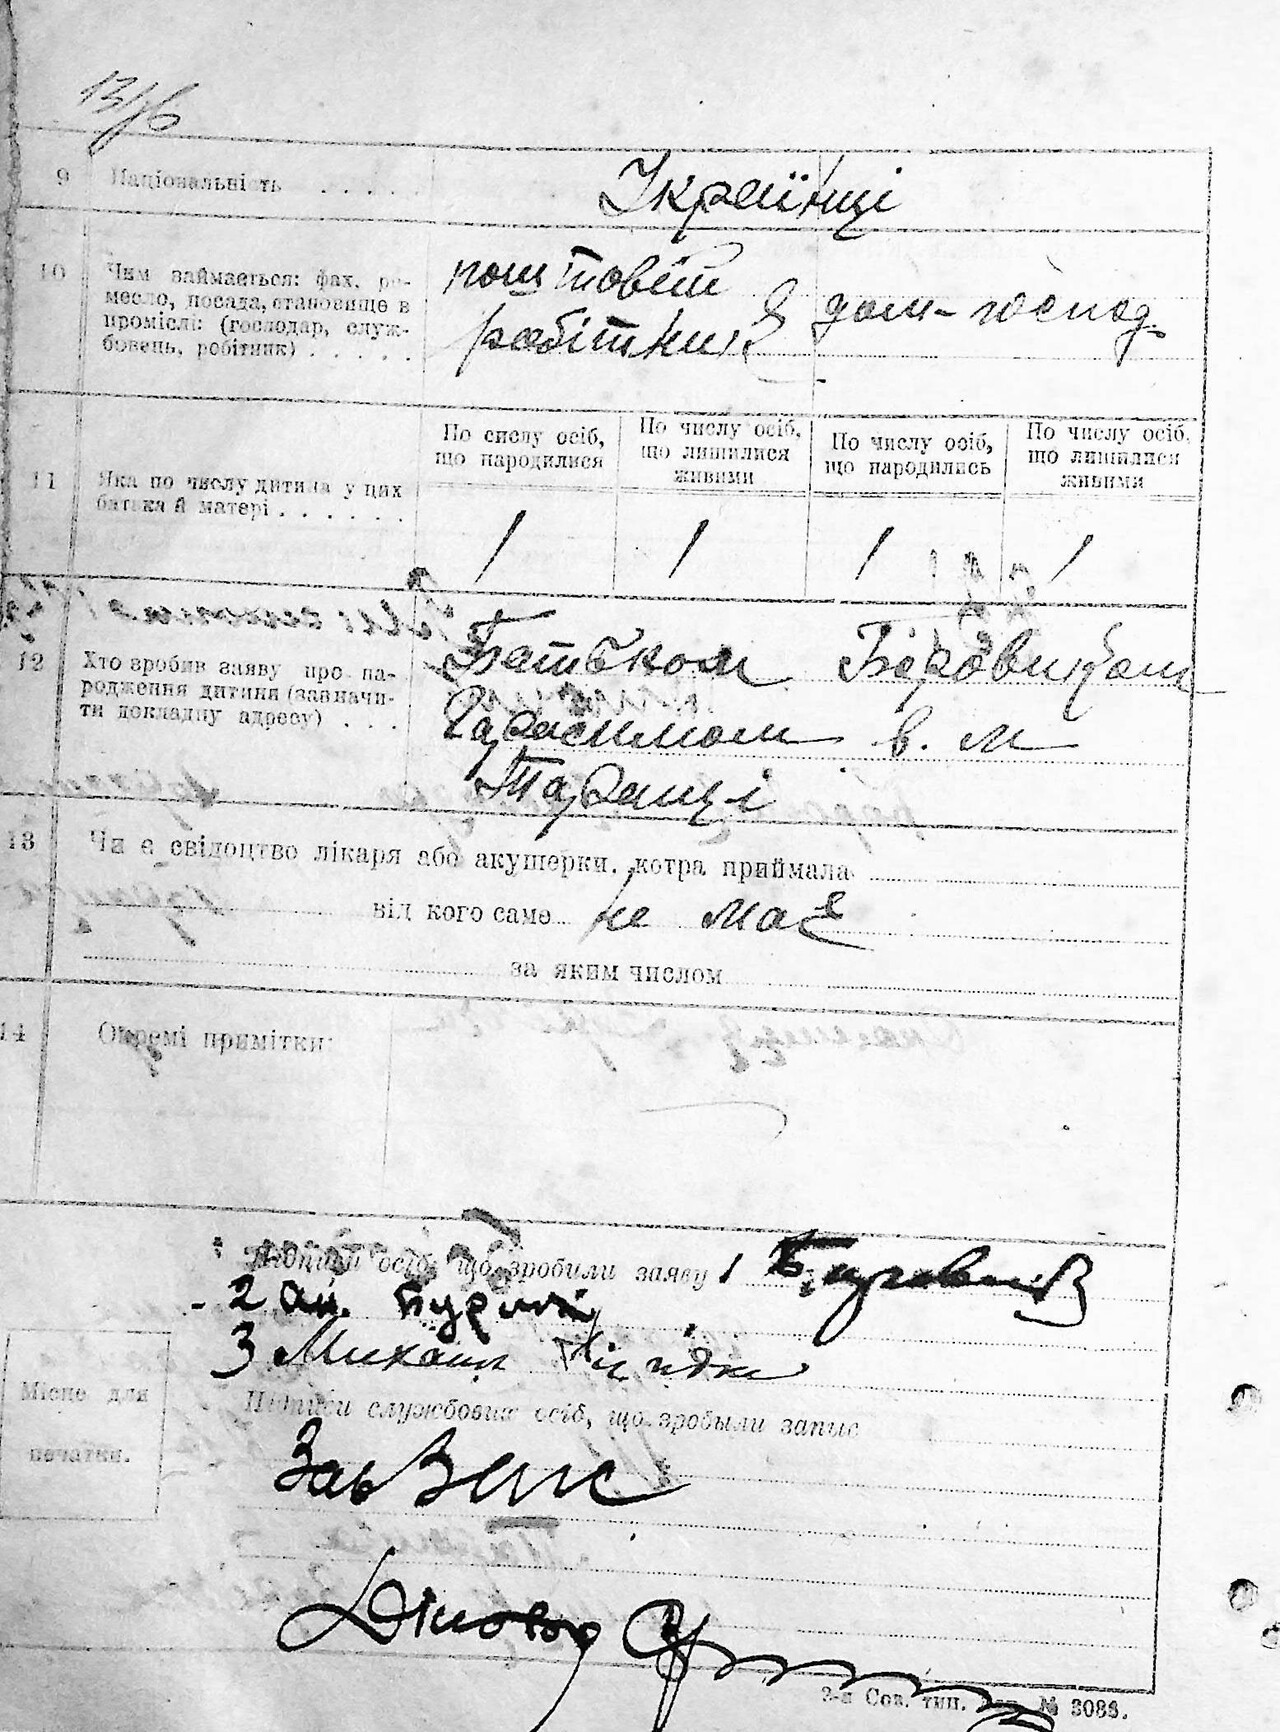 9 Національність . . . . .
Українці
10 Чим займається: фах, ре-
месло, посада, становище в
промислі: (господар, служ-
бовець, робітник) . . . . .
поштовий
робітник
дом-господ.
11 Яка по числу дитина у цих
батька й матері . . . . . .
По числу осіб,
що народилися
По числу осіб,
що лишилися
живими
По числу осіб,
що народились
По числу осіб,
що лишилися
живими
1 1 1 1
12 Хто зробив заяву про на-
родження дитини (зазначи-
ти докладну адресу) . . .
Батьком Боровиком
Гарасимом в. м
Таращі
13 Чи є свідоцтво лікаря або акушерки, котра приймала
від кого саме не має
за яким числом
14 Окремі примітки:
Підписи осіб, що зробили заяву 1
2
3 Михаил
Підписи службових осіб, що зробыли запис
Місце для
печатки.
Зав Загс
Діловод
2-а Сов. тип. № 3088.